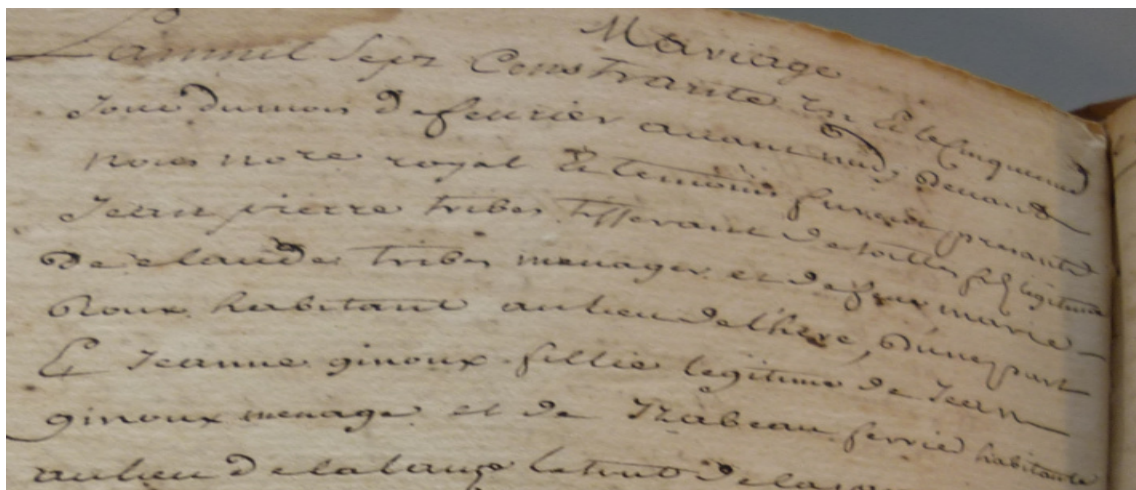 Mariage
Lan mil sept Cens trante un & le Cinquieme
Jour du mois de feurier auant midy deuant
nous no.re royal & temoins furent presants
Jean pierre tribes tisserant de toilles fils legitime
de claude tribes menager et de feue marie
Roux habitant au lieu de l'hire, d'une part
Et Jeanne ginoux fillie legitime de Jean
ginoux menager et de Izabeau ferrie habitante
au lieu de la le tout de